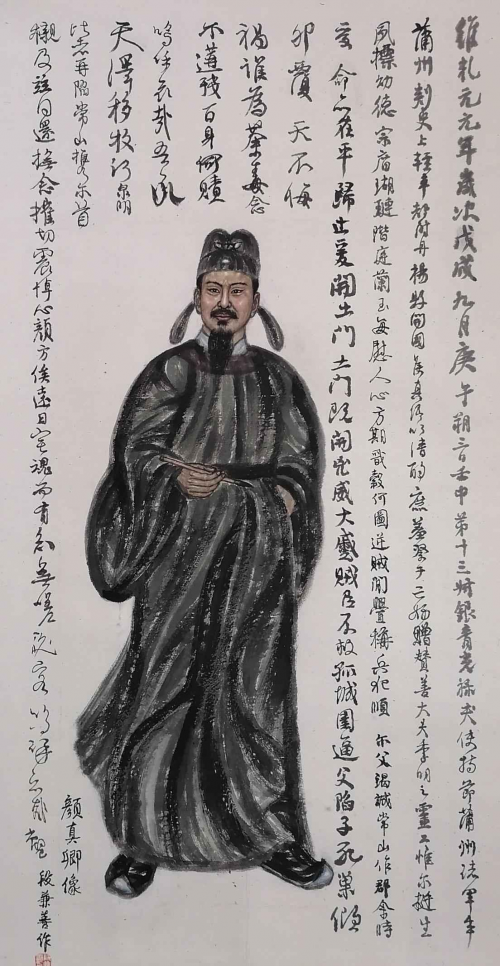 維乾元元年歲次戊戌九月庚午朔三日壬申第十三叔銀青光祿夫使持節蒲州諸軍事
蒲州刺史上輕車都尉丹楊縣開國侯真卿以清酌庶羞祭于亡姪贈贊善大夫季明之靈曰惟尔挺生
夙標幼德宗廟瑚璉階庭蘭玉每慰人心方期戩穀何圖逆賊閒釁稱兵犯順尔父竭誠常山作郡余時
受命亦在平歸止爰開土門土門既開凶威大蹙賊臣不救孤城圍逼父陷子死巢傾
卵覆天不悔
禍誰為荼毒念
尔遘殘百身何贖
嗚呼哀哉吾承
天澤移牧河泉明
比者再陷常山攜尔首
櫬及茲同還撫念摧切震悼心顏方俟遠日宅魂而有知無嗟久客嗚呼哀哉尚饗
顏真卿像
段兼善作